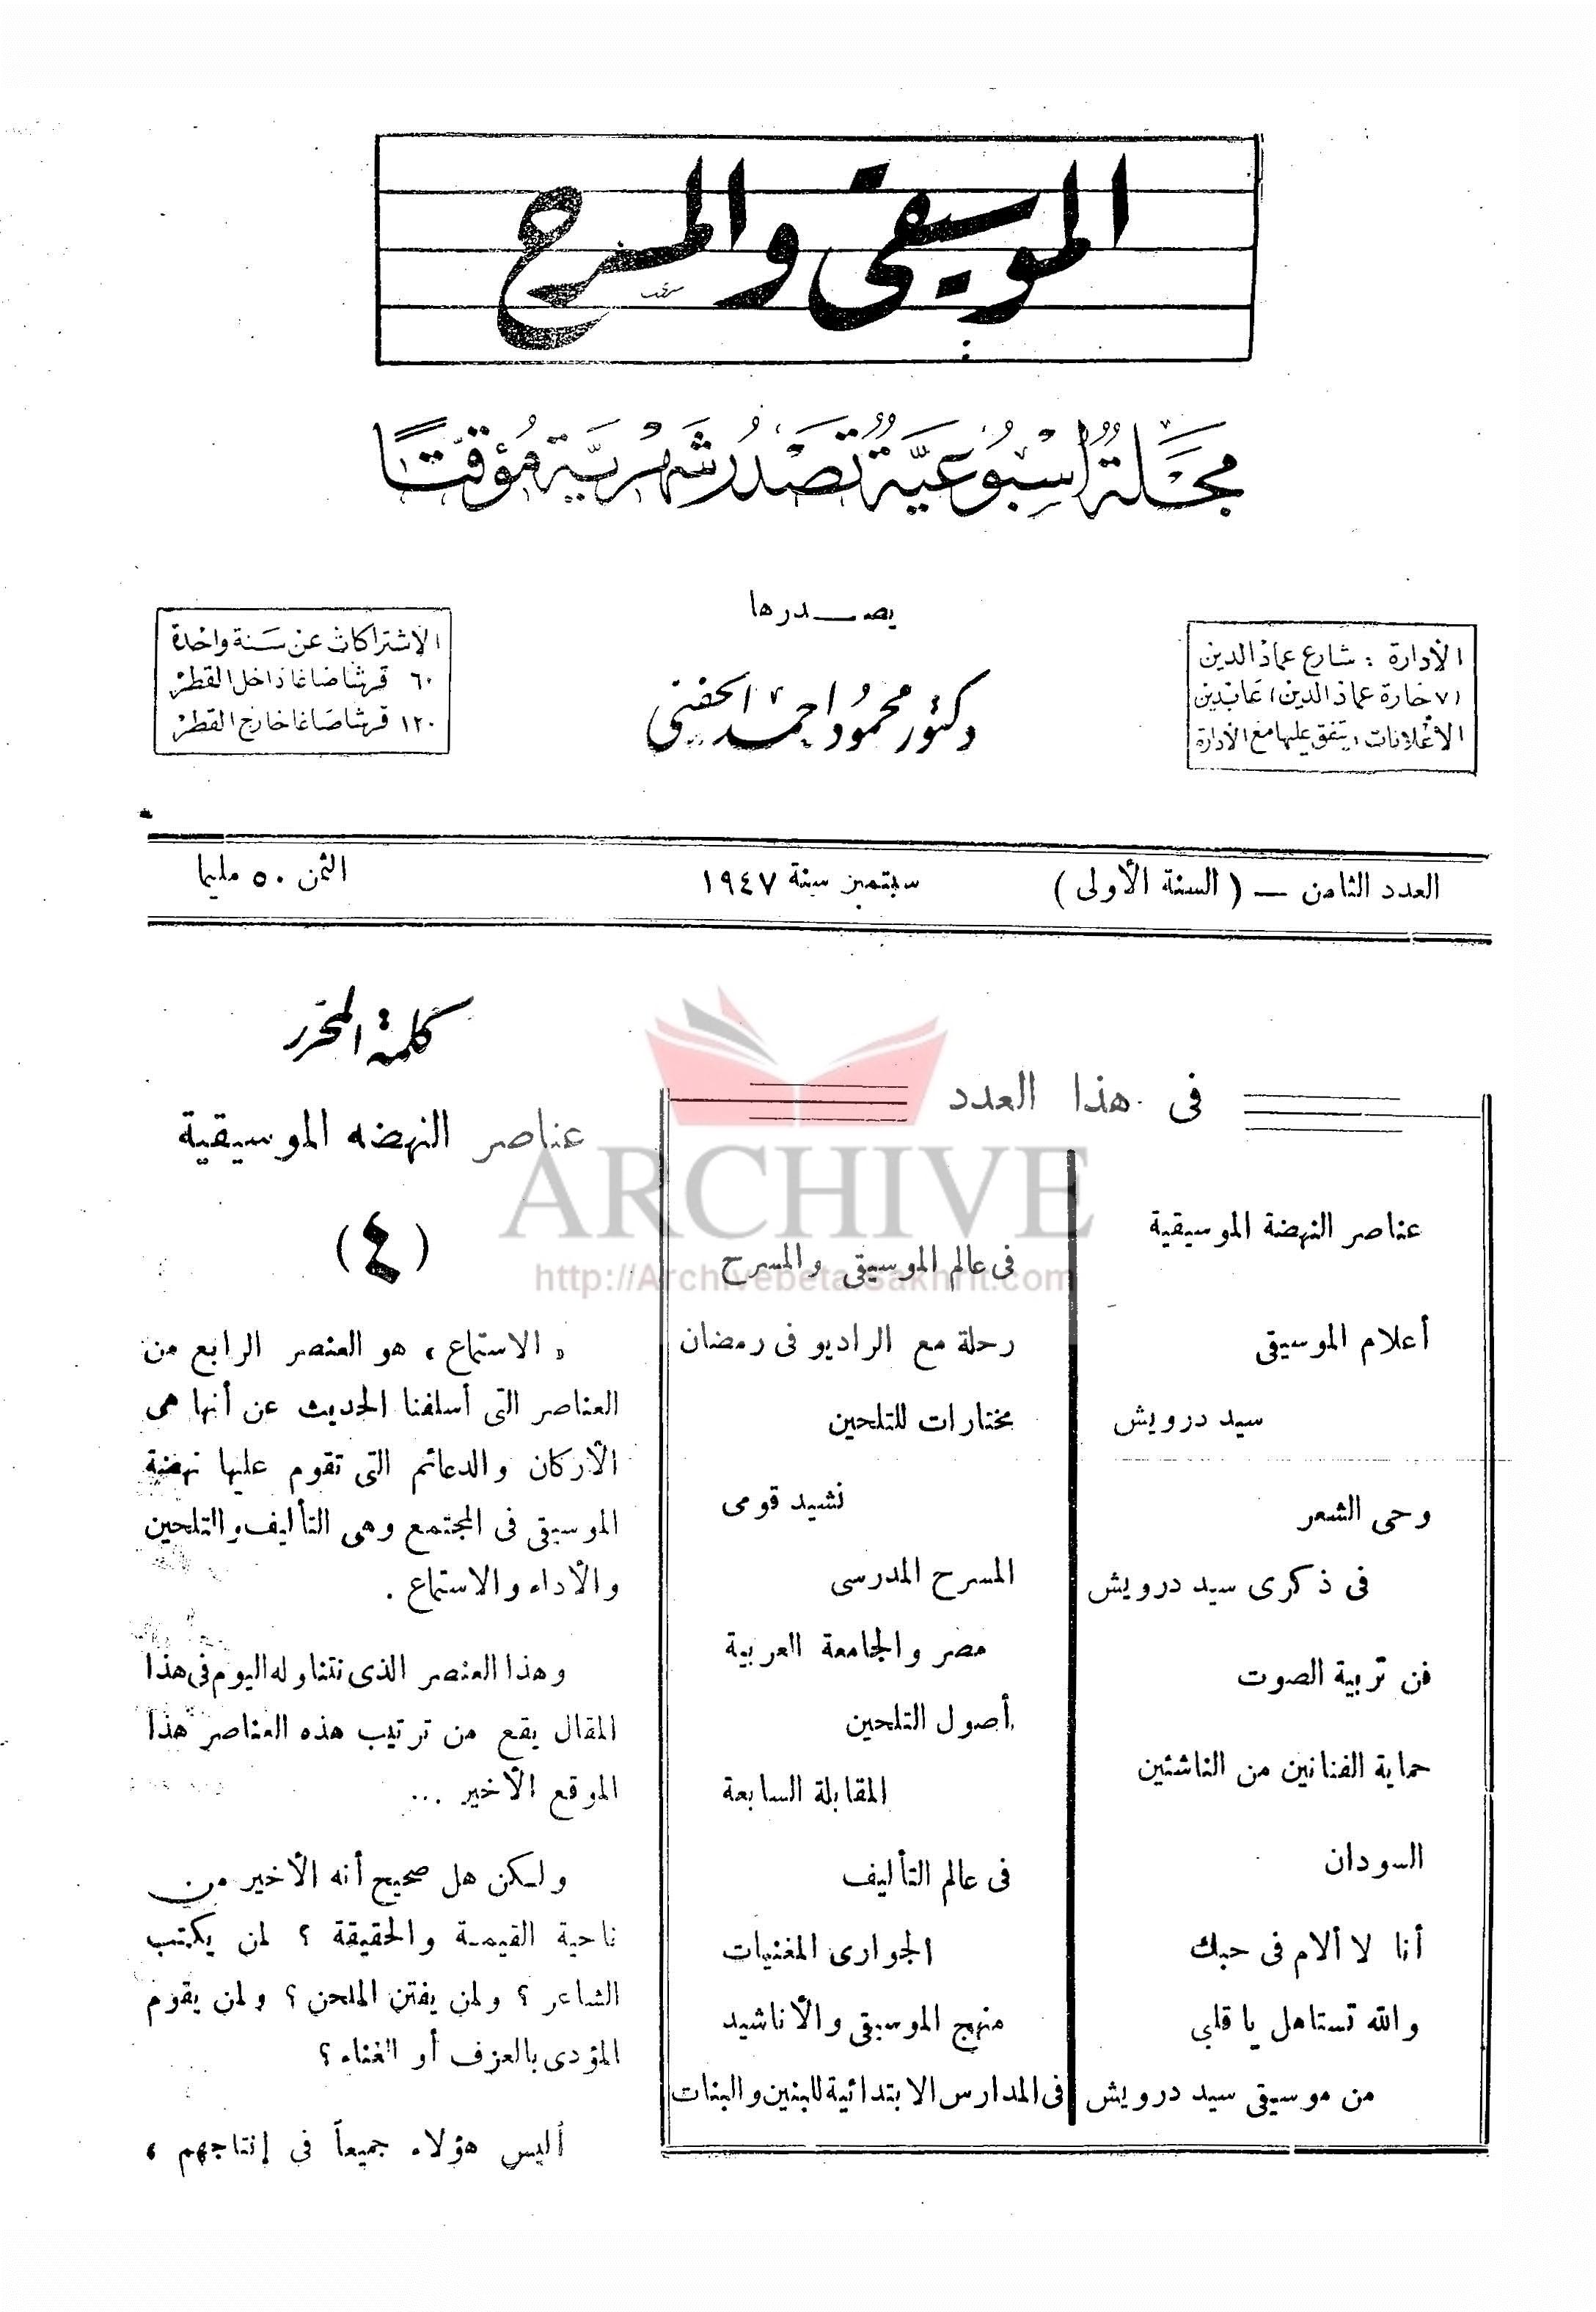 الموسيقى والمسرح
مجلة اسبوعية تصدر شهرية مؤقتًا
يصدرها
دكتور محمود احمد الحفنى
الادارة : شارع عماد الدين
(٧ حارة عماد الدين) عابدين
الأعلانات : يتفق عليها مع الادارة
الاشتراكات عن سنة واحدة
٦٠ قرشا صاغا داخل القطر
١٢٠ قرشا صاغا خارج القطر
العدد الثامن — ( السنة الأولى ) سبتمبر سنة ١٩٤٧ الثمن ٥٠ مليما
فى هذا العدد
عناصر النهضة الموسيقية
أعلام الموسيقى
سيد درويش
وحى الشعر
فى ذكرى سيد درويش
فن تربية الصوت
حماية الفنانين من الناشئين
السودان
أنا لا ألام فى حبك
والله تستاهل يا قلبى
من موسيقى سيد درويش
فى عالم الموسيقى والمسرح
رحلة مع الراديو فى رمضان
مختارات للتلحين
نشيد قومى
المسرح المدرسى
مصر والجامعة العربية
أصول التلحين
المقابلة السابعة
فى عالم التأليف
الجوارى المغنيات
منهج الموسيقى والأناشيد
فى المدارس الابتدائية للبنين والبنات
كلمة المحرر
عناصر النهضه الموسيقية
(٤)
« الاستماع » هو العنصر الرابع من
العناصر التى أسلفنا الحديث عن أنها هى
الأركان والدعائم التى تقوم عليها نهضة
الموسيقى فى المجتمع وهى التأليف والتلحين
والأداء والاستماع .
وهذا العنصر الذى نتناوله اليوم فى هذا
المقال يقع من ترتيب هذه العناصر هذا
الموقع الأخير ...
ولكن هل صحيح أنه الأخير من
ناحية القيمة والحقيقة ؟ لمن يكتب
الشاعر ؟ ولمن يفتن الملحن ؟ ولمن يقوم
المؤدى بالعزف أو الغناء ؟
أليس هؤلاء جميعاً فى إنتاجهم ،
ARCHIVE
http://Archivebeta.Sakhrit.com